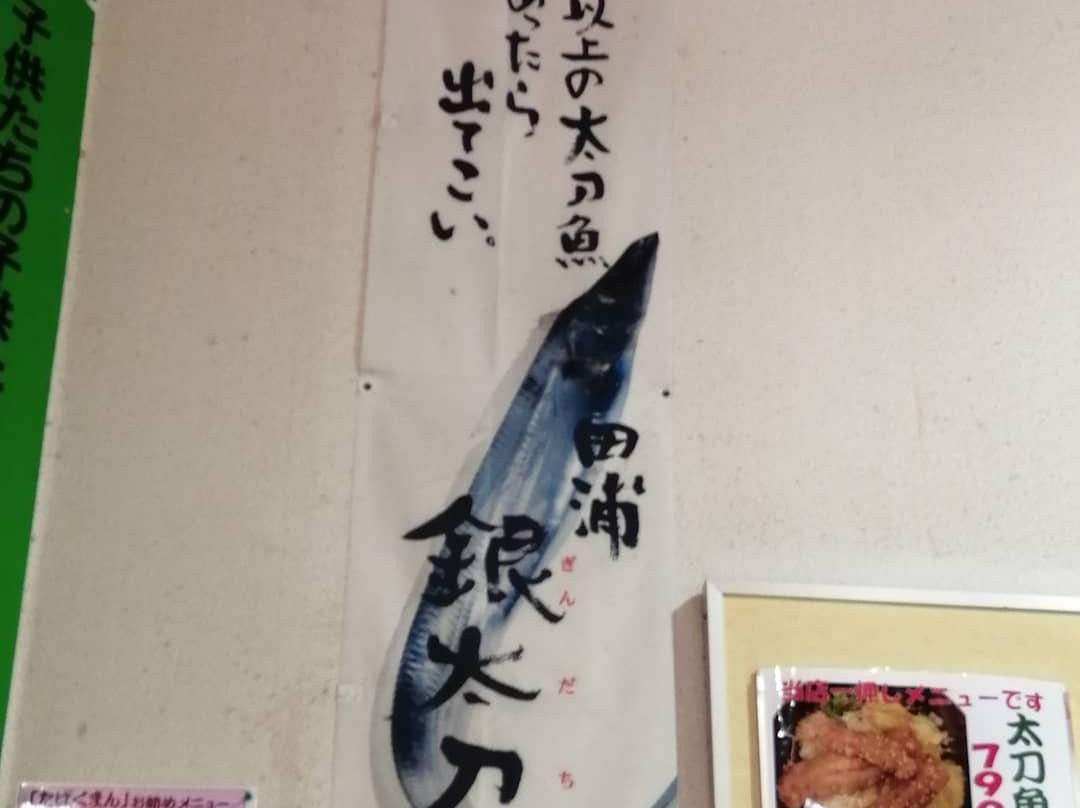 以上の太刀魚
あったら
出てこい。
田浦
銀太刀
ぎんだち
子供たちの子供
当店一押しメニューです
太刀魚
79
お勧めメニュー